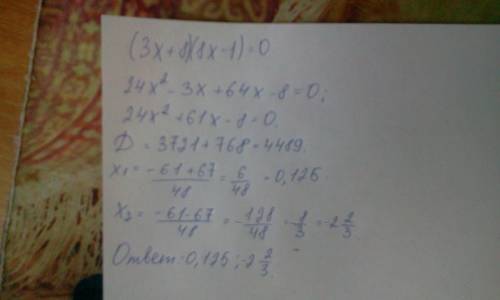 (3x+8)(8x-1)=0
24x²-3x+64x-8=0;
24x²+61x-8=0.
D=3721+768=4489.
x₁=(-61+67)/48=6/48=0,125
x₂=(-61-67)/48=-128/48=-8/3=-2 2/3.
Ответ: 0,125; -2 2/3.